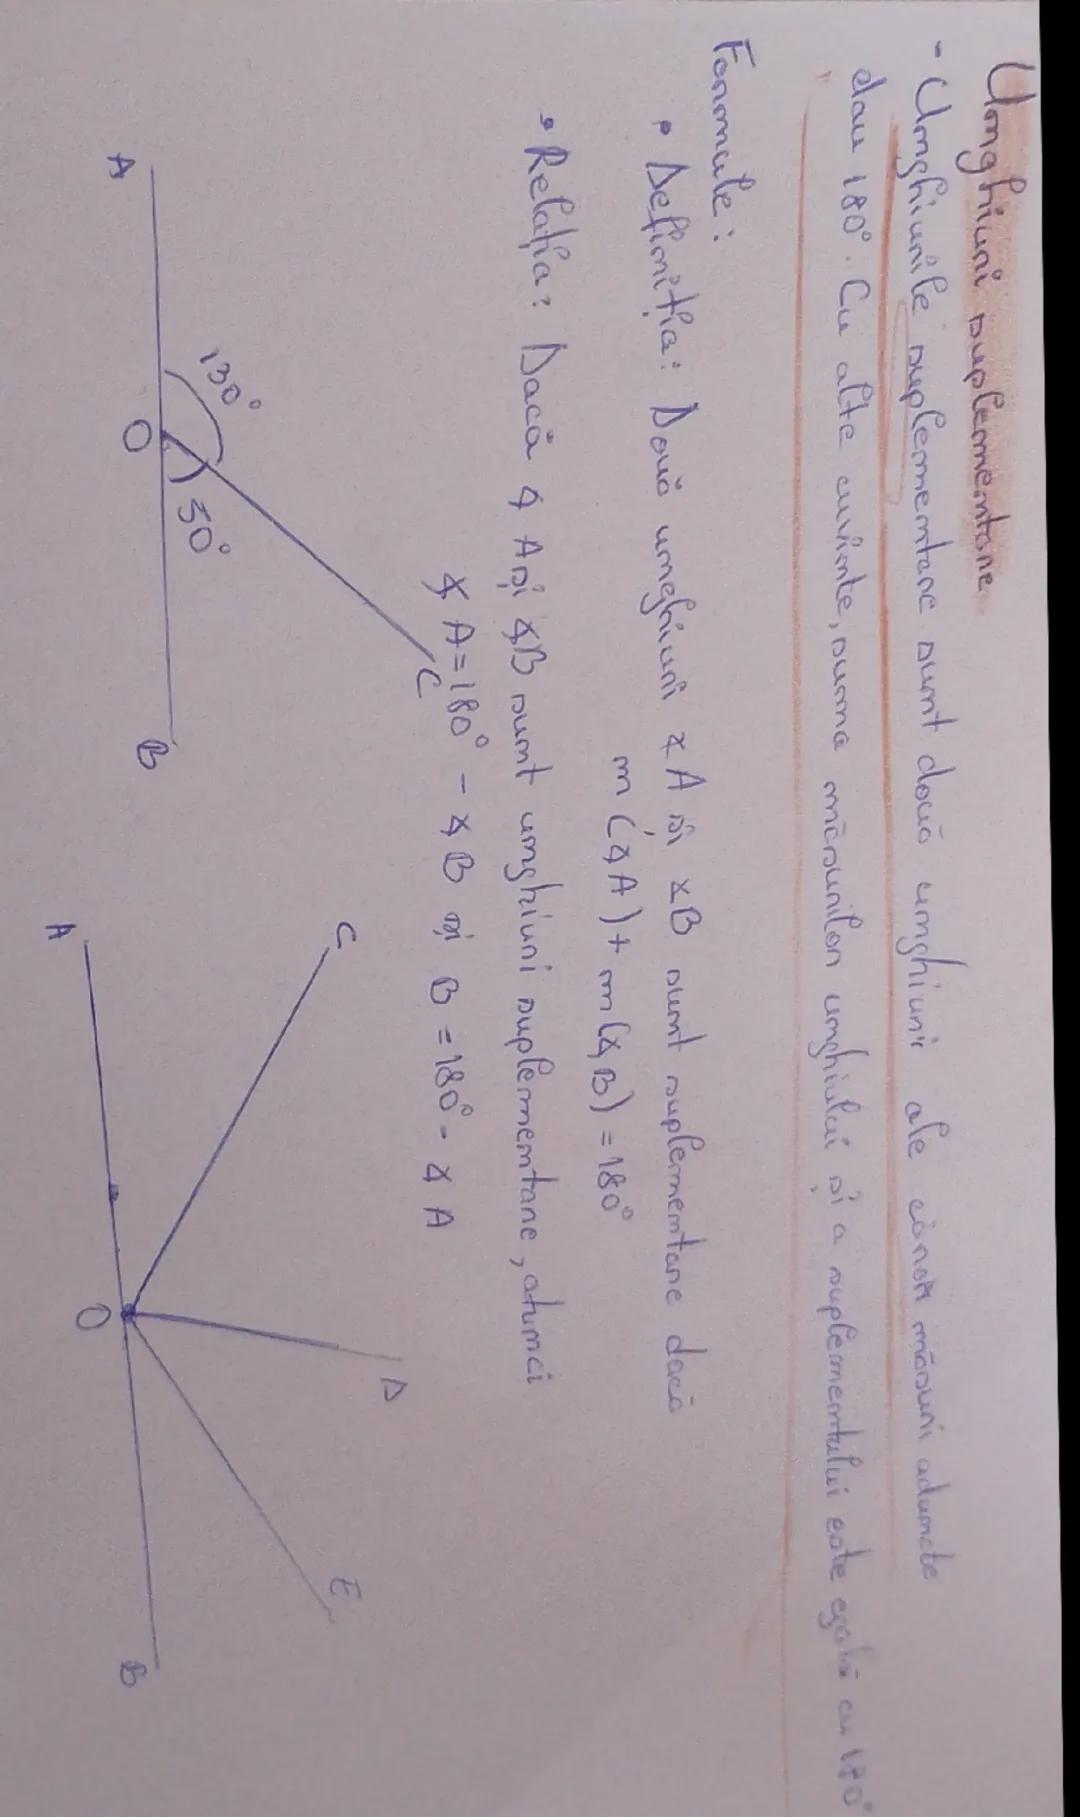 Unghiuri suplementare
- Unghiurile suplementare sunt două unghiuri ale căror măsuri adunate
dau 180°. Cu alte cuvinte, suma măsurilor unghiului și a suplementului este egală cu 180°
Formule:
• Definiția: Două unghiuri ∢A și ∢B sunt suplementare dacă
m(∢A) + m(∢B) = 180°
• Relația: Dacă ∢A și ∢B sunt unghiuri suplementare, atunci
∢A = 180° - ∢B și B = 180° - ∢A
C
130° 50°
A O B
C D E
A O B